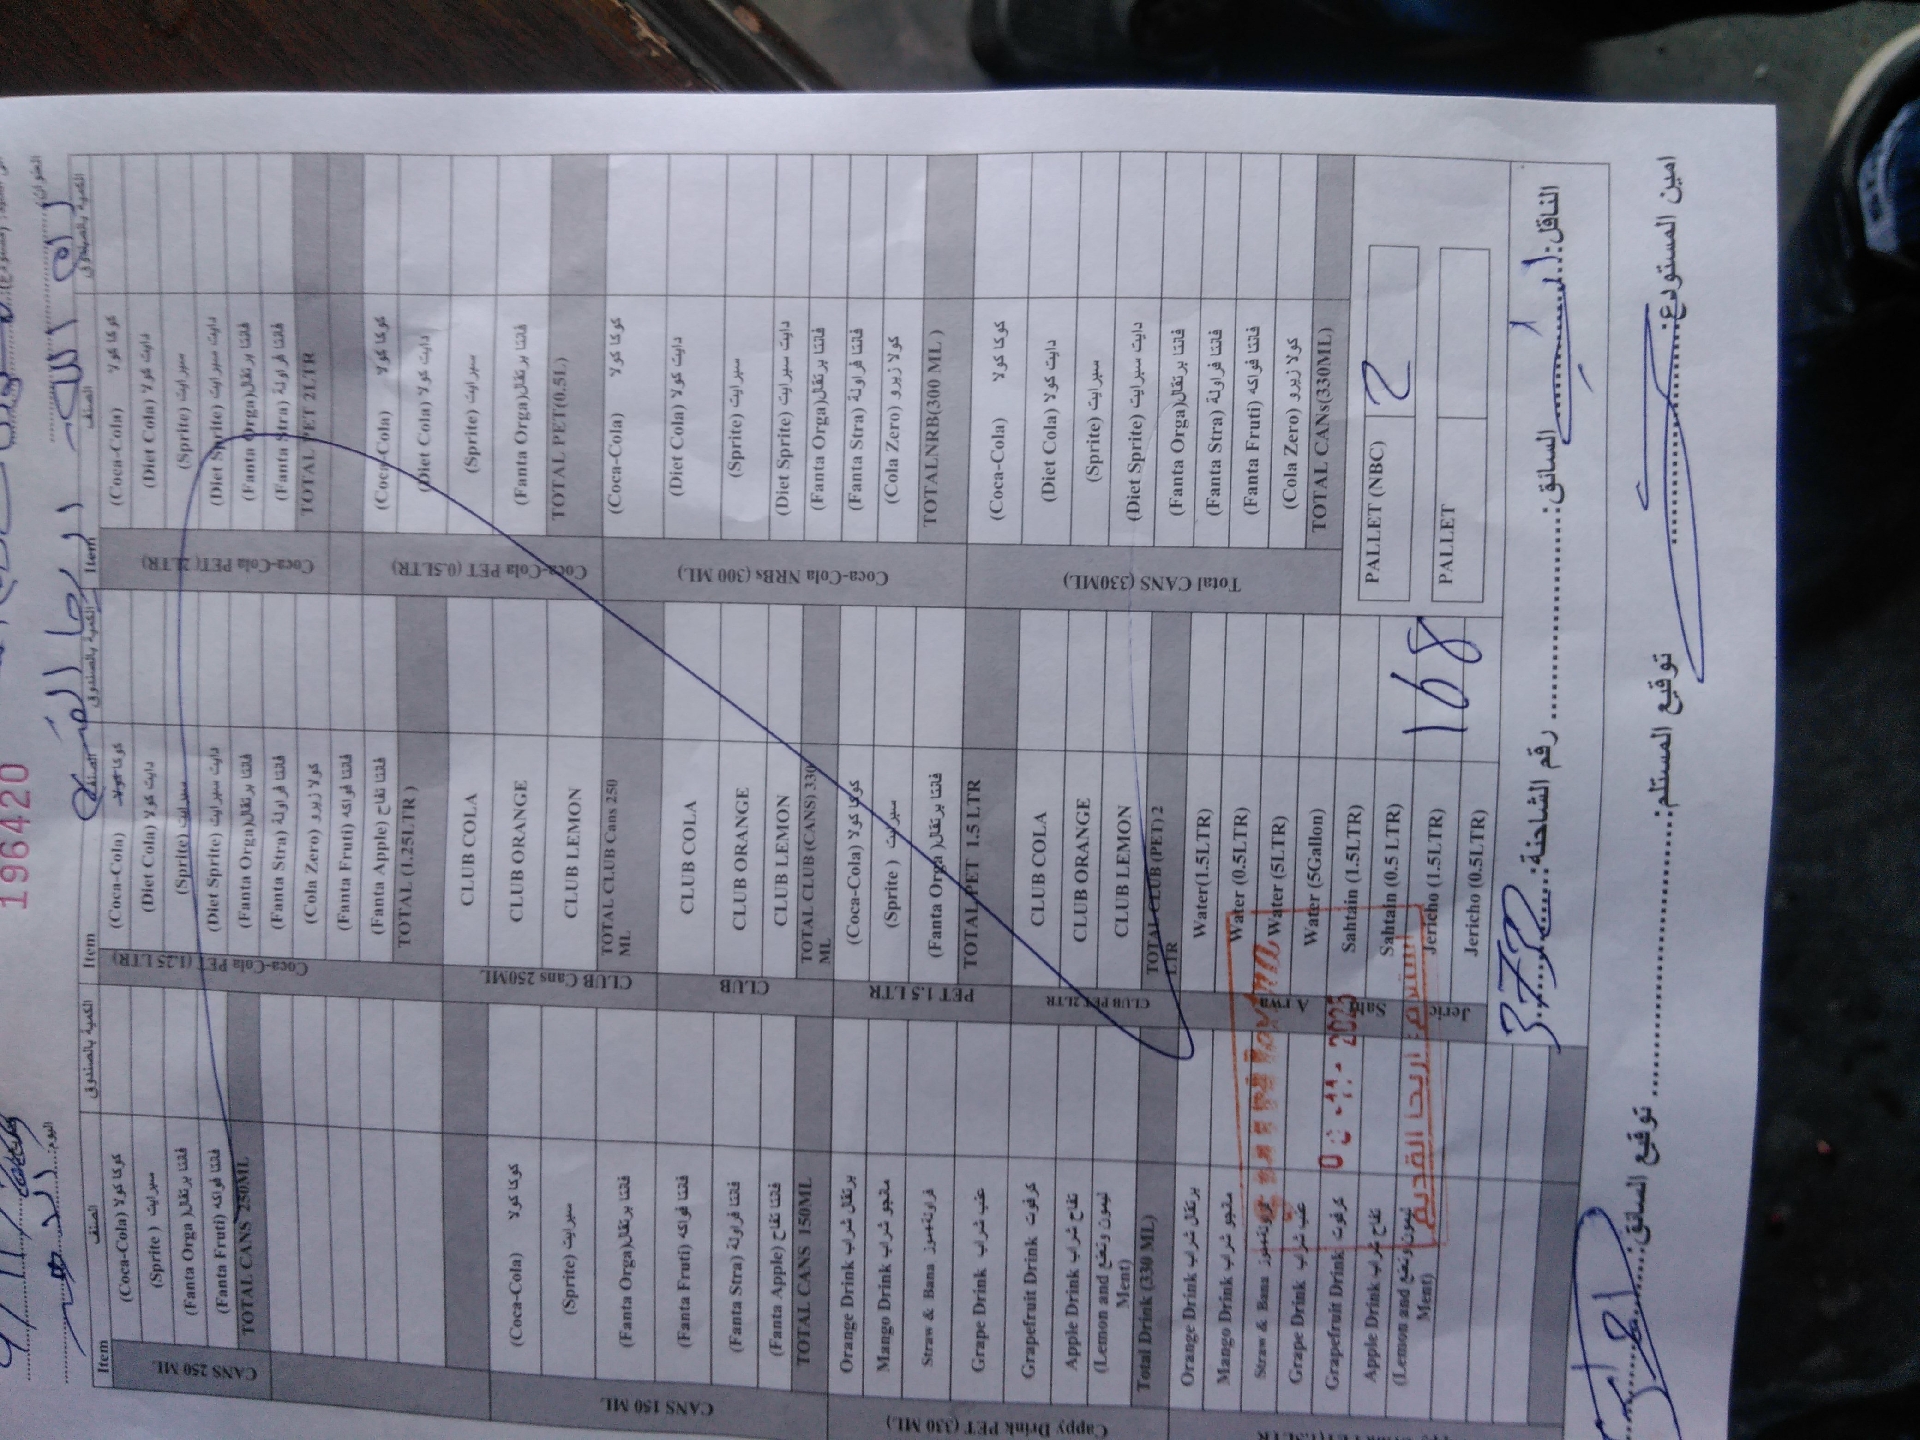 196420
العنوان:
اليوم:
Item الصنف الكمية بالصندوق Item الصنف الكمية بالصندوق Item الصنف الكمية بالصندوق
CANS 250 ML
(Coca-Cola) كوكا كولا
(Sprite ) سبرايت
(Fanta Orga )فانتا برتقال
(Fanta Fruti) فانتا فواكه
TOTAL CANS 250ML
CANS 150 ML
(Coca-Cola) كوكا كولا
(Sprite) سبرايت
(Fanta Orga)فانتا برتقال
(Fanta Fruti) فانتا فواكه
(Fanta Stra) فانتا فراولة
(Fanta Apple) فانتا تفاح
TOTAL CANS 150ML
Cappy Drink PET (330 ML)
Orange Drink برتقال شراب
Mango Drink مانجو شراب
Straw & Bana فراولة/موز
Grape Drink عنب شراب
Grapefruit Drink كرفوت
Apple Drink تفاح شراب
(Lemon and ليمون ونعنع
Ment)
Total Drink (330 ML)
Orange Drink برتقال شراب
Mango Drink مانجو شراب
Straw & Bana
Grape Drink عنب شراب
Grapefruit Drink كرفوت
Apple Drink تفاح شراب
(Lemon and ليمون ونعنع
Ment)
Coca-Cola PET (1.25 LTR)
(Coca-Cola) كوكا كولا
(Diet Cola) دايت كولا
(Sprite) سبرايت
(Diet Sprite) دايت سبرايت
(Fanta Orga)فانتا برتقال
(Fanta Stra) فانتا فراولة
(Cola Zero) كولا زيرو
(Fanta Fruti) فانتا فواكه
(Fanta Apple) فانتا تفاح
TOTAL (1.25LTR )
CLUB Cans 250ML
CLUB COLA
CLUB ORANGE
CLUB LEMON
TOTAL CLUB Cans 250
ML
CLUB
CLUB COLA
CLUB ORANGE
CLUB LEMON
TOTAL CLUB (CANS) 330
ML
PET 1.5 LTR
(Coca-Cola) كوكا كولا
(Sprite ) سبرايت
(Fanta Orga )فانتا برتقال
TOTAL PET 1.5 LTR
CLUB PET 2LTR
CLUB COLA
CLUB ORANGE
CLUB LEMON
TOTAL CLUB (PET) 2
LTR
Arwa
Water(1.5LTR)
Water (0.5LTR)
Water (5LTR)
Water (5Gallon)
Sahtain (1.5LTR)
Sahtain (0.5 LTR)
Jericho (1.5LTR) 168
Jericho (0.5LTR)
Coca-Cola PET( 2LTR)
(Coca-Cola) كوكا كولا
(Diet Cola) دايت كولا
(Sprite) سبرايت
(Diet Sprite) دايت سبرايت
(Fanta Orga)فانتا برتقال
(Fanta Stra) فانتا فراولة
TOTAL PET 2LTR
Coca-Cola PET (0.5LTR)
(Coca-Cola) كوكا كولا
(Diet Cola) دايت كولا
(Sprite) سبرايت
(Fanta Orga)فانتا برتقال
TOTAL PET(0.5L)
Coca-Cola NRBs (300 ML)
(Coca-Cola) كوكا كولا
(Diet Cola) دايت كولا
(Sprite) سبرايت
(Diet Sprite) دايت سبرايت
(Fanta Orga)فانتا برتقال
(Fanta Stra) فانتا فراولة
(Cola Zero) كولا زيرو
TOTALNRB(300 ML )
Total CANS (330ML)
(Coca-Cola) كوكا كولا
(Diet Cola) دايت كولا
(Sprite) سبرايت
(Diet Sprite) دايت سبرايت
(Fanta Orga)فانتا برتقال
(Fanta Stra) فانتا فراولة
(Fanta Fruti) فانتا فواكه
(Cola Zero) كولا زيرو
TOTAL CANs(330ML)
PALLET (NBC) 2
PALLET
الناقل: السائق: رقم الشاحنة: 3732
امين المستودع: توقيع المستلم: توقيع السائق: